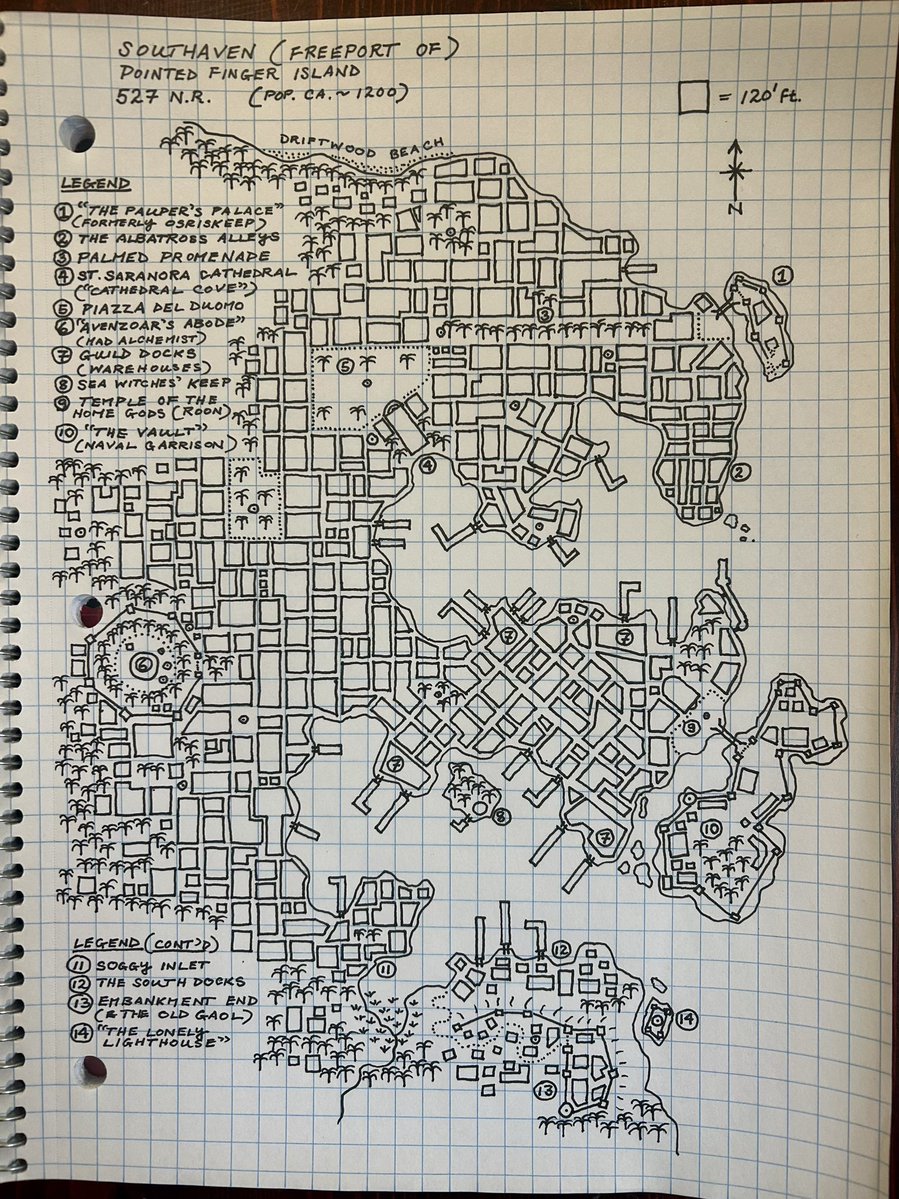 SOUTHAVEN (FREEPORT OF)
POINTED FINGER ISLAND
527 N.R. (POP. CA. ~ 1200)
= 120' Ft.
N
DRIFTWOOD BEACH
LEGEND
① "THE PAUPER'S PALACE"
(FORMERLY OSRISKEEP)
② THE ALBATROSS ALLEYS
③ PALMED PROMENADE
④ ST. SARANORA CATHEDRAL
("CATHEDRAL COVE")
⑤ PIAZZA DEL DUOMO
⑥ "AVENZOAR'S ABODE"
(MAD ALCHEMIST)
⑦ GUILD DOCKS
(WAREHOUSES)
⑧ SEA WITCHES' KEEP
⑨ TEMPLE OF THE
HOME GODS (ROON)
⑩ "THE VAULT"
(NAVAL GARRISON)
①
③
⑤
④
②
⑥
⑦
⑦
⑨
⑦
⑧
⑩
⑦
LEGEND (CONT'D)
⑪ SOGGY INLET
⑫ THE SOUTH DOCKS
⑬ EMBANKMENT END
(& THE OLD GAOL)
⑭ "THE LONELY
LIGHTHOUSE"
⑪
⑫
⑭
⑬